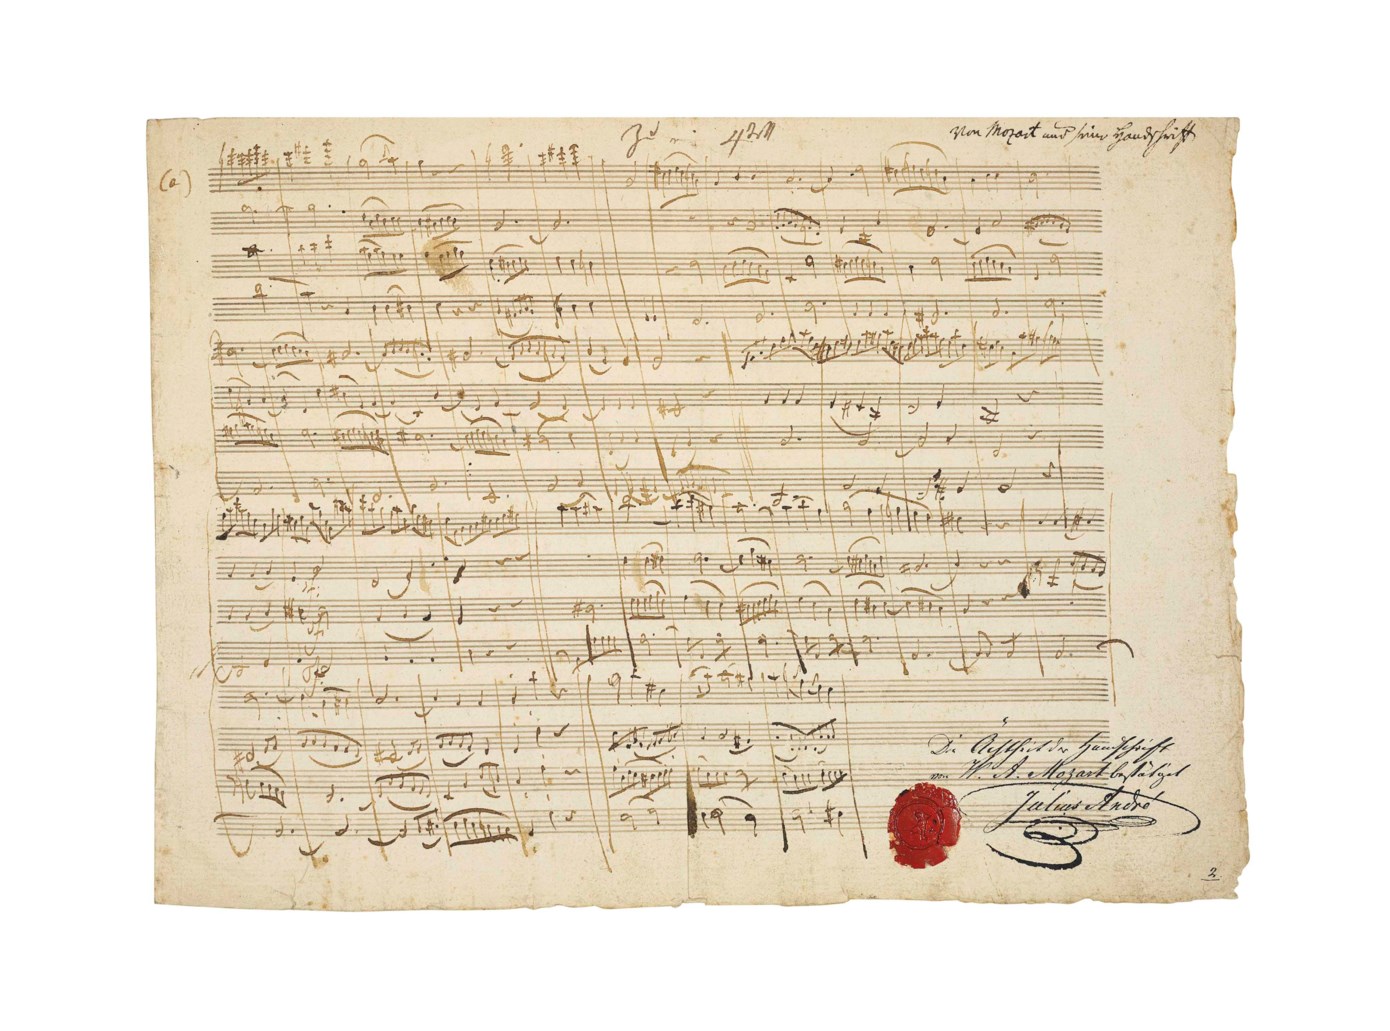 (a)
Von Mozart und seine Handschrift
Die Aechtheit der Handschrift
von W. A. Mozart bestätigt
Julius André
2